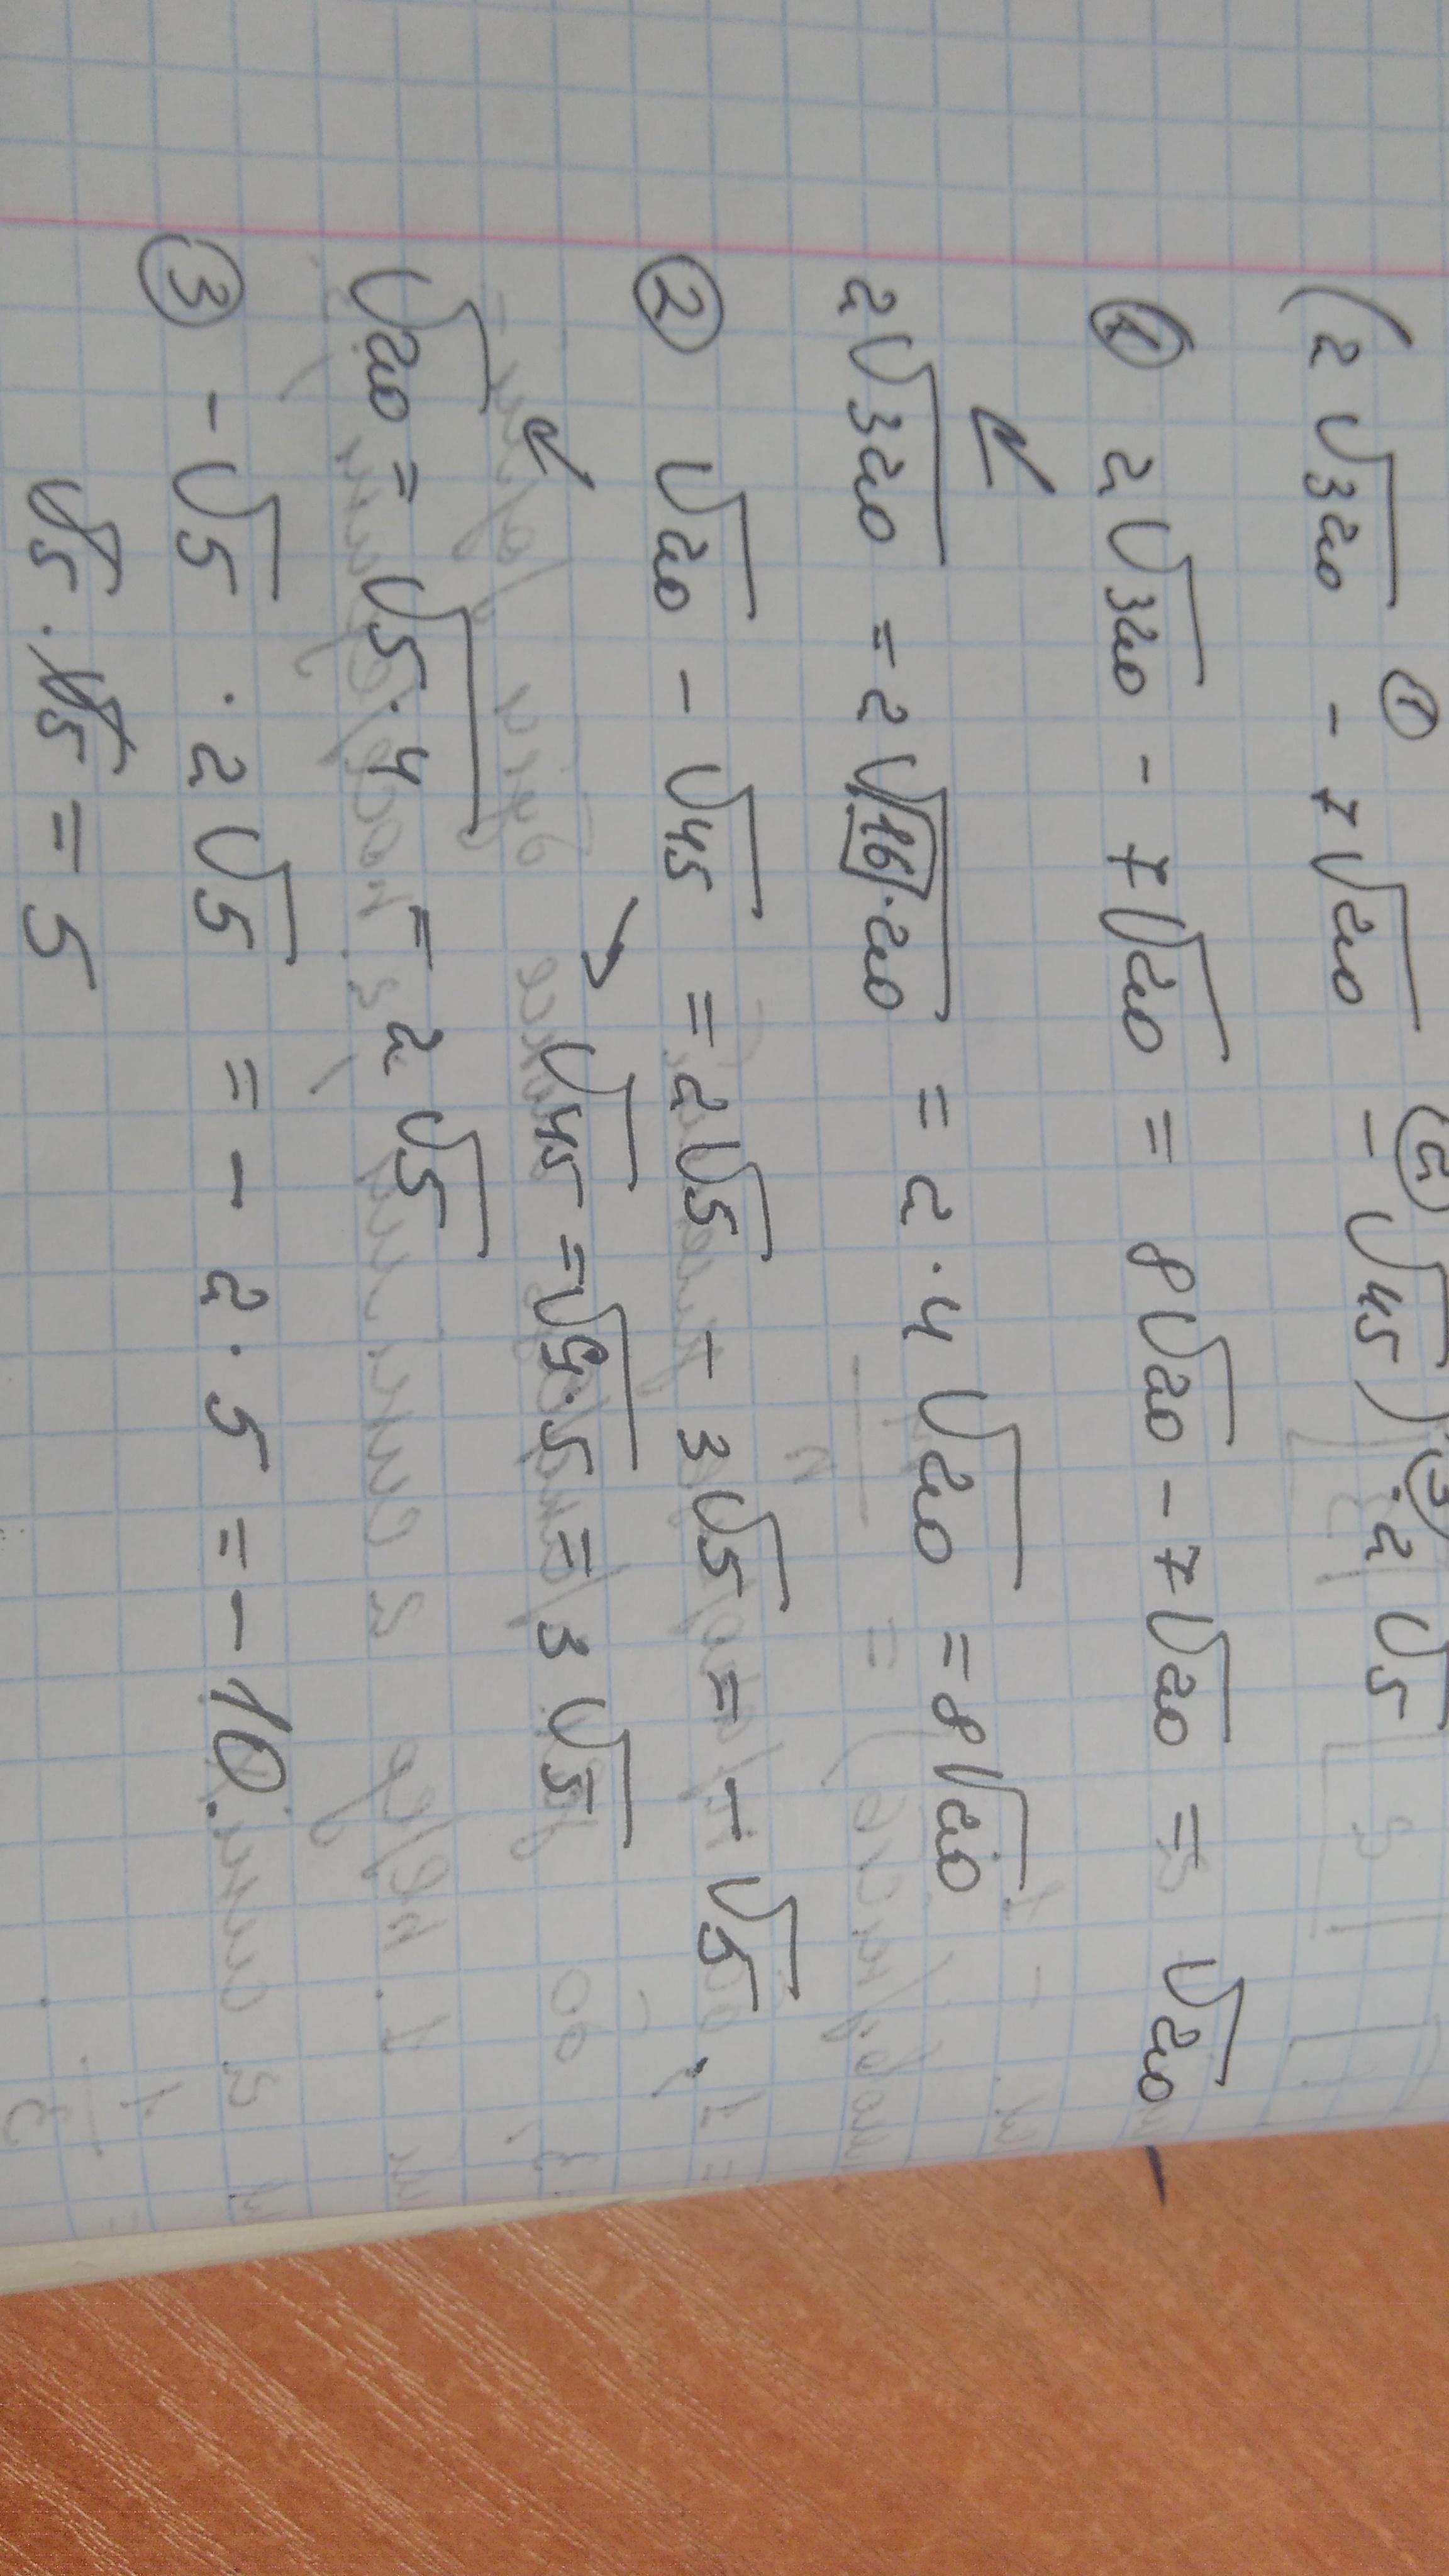 (2√320 - 7√20 - √45) · 2√5
① 2√320 - 7√20 = 8√20 - 7√20 = √20
2√320 = 2√16·20 = 2·4√20 = 8√20
② √20 - √45 = 2√5 - 3√5 = -√5
√45 = √9·5 = 3√5
√20 = √5·4 = 2√5
③ -√5 · 2√5 = -2·5 = -10.
√5·√5 = 5